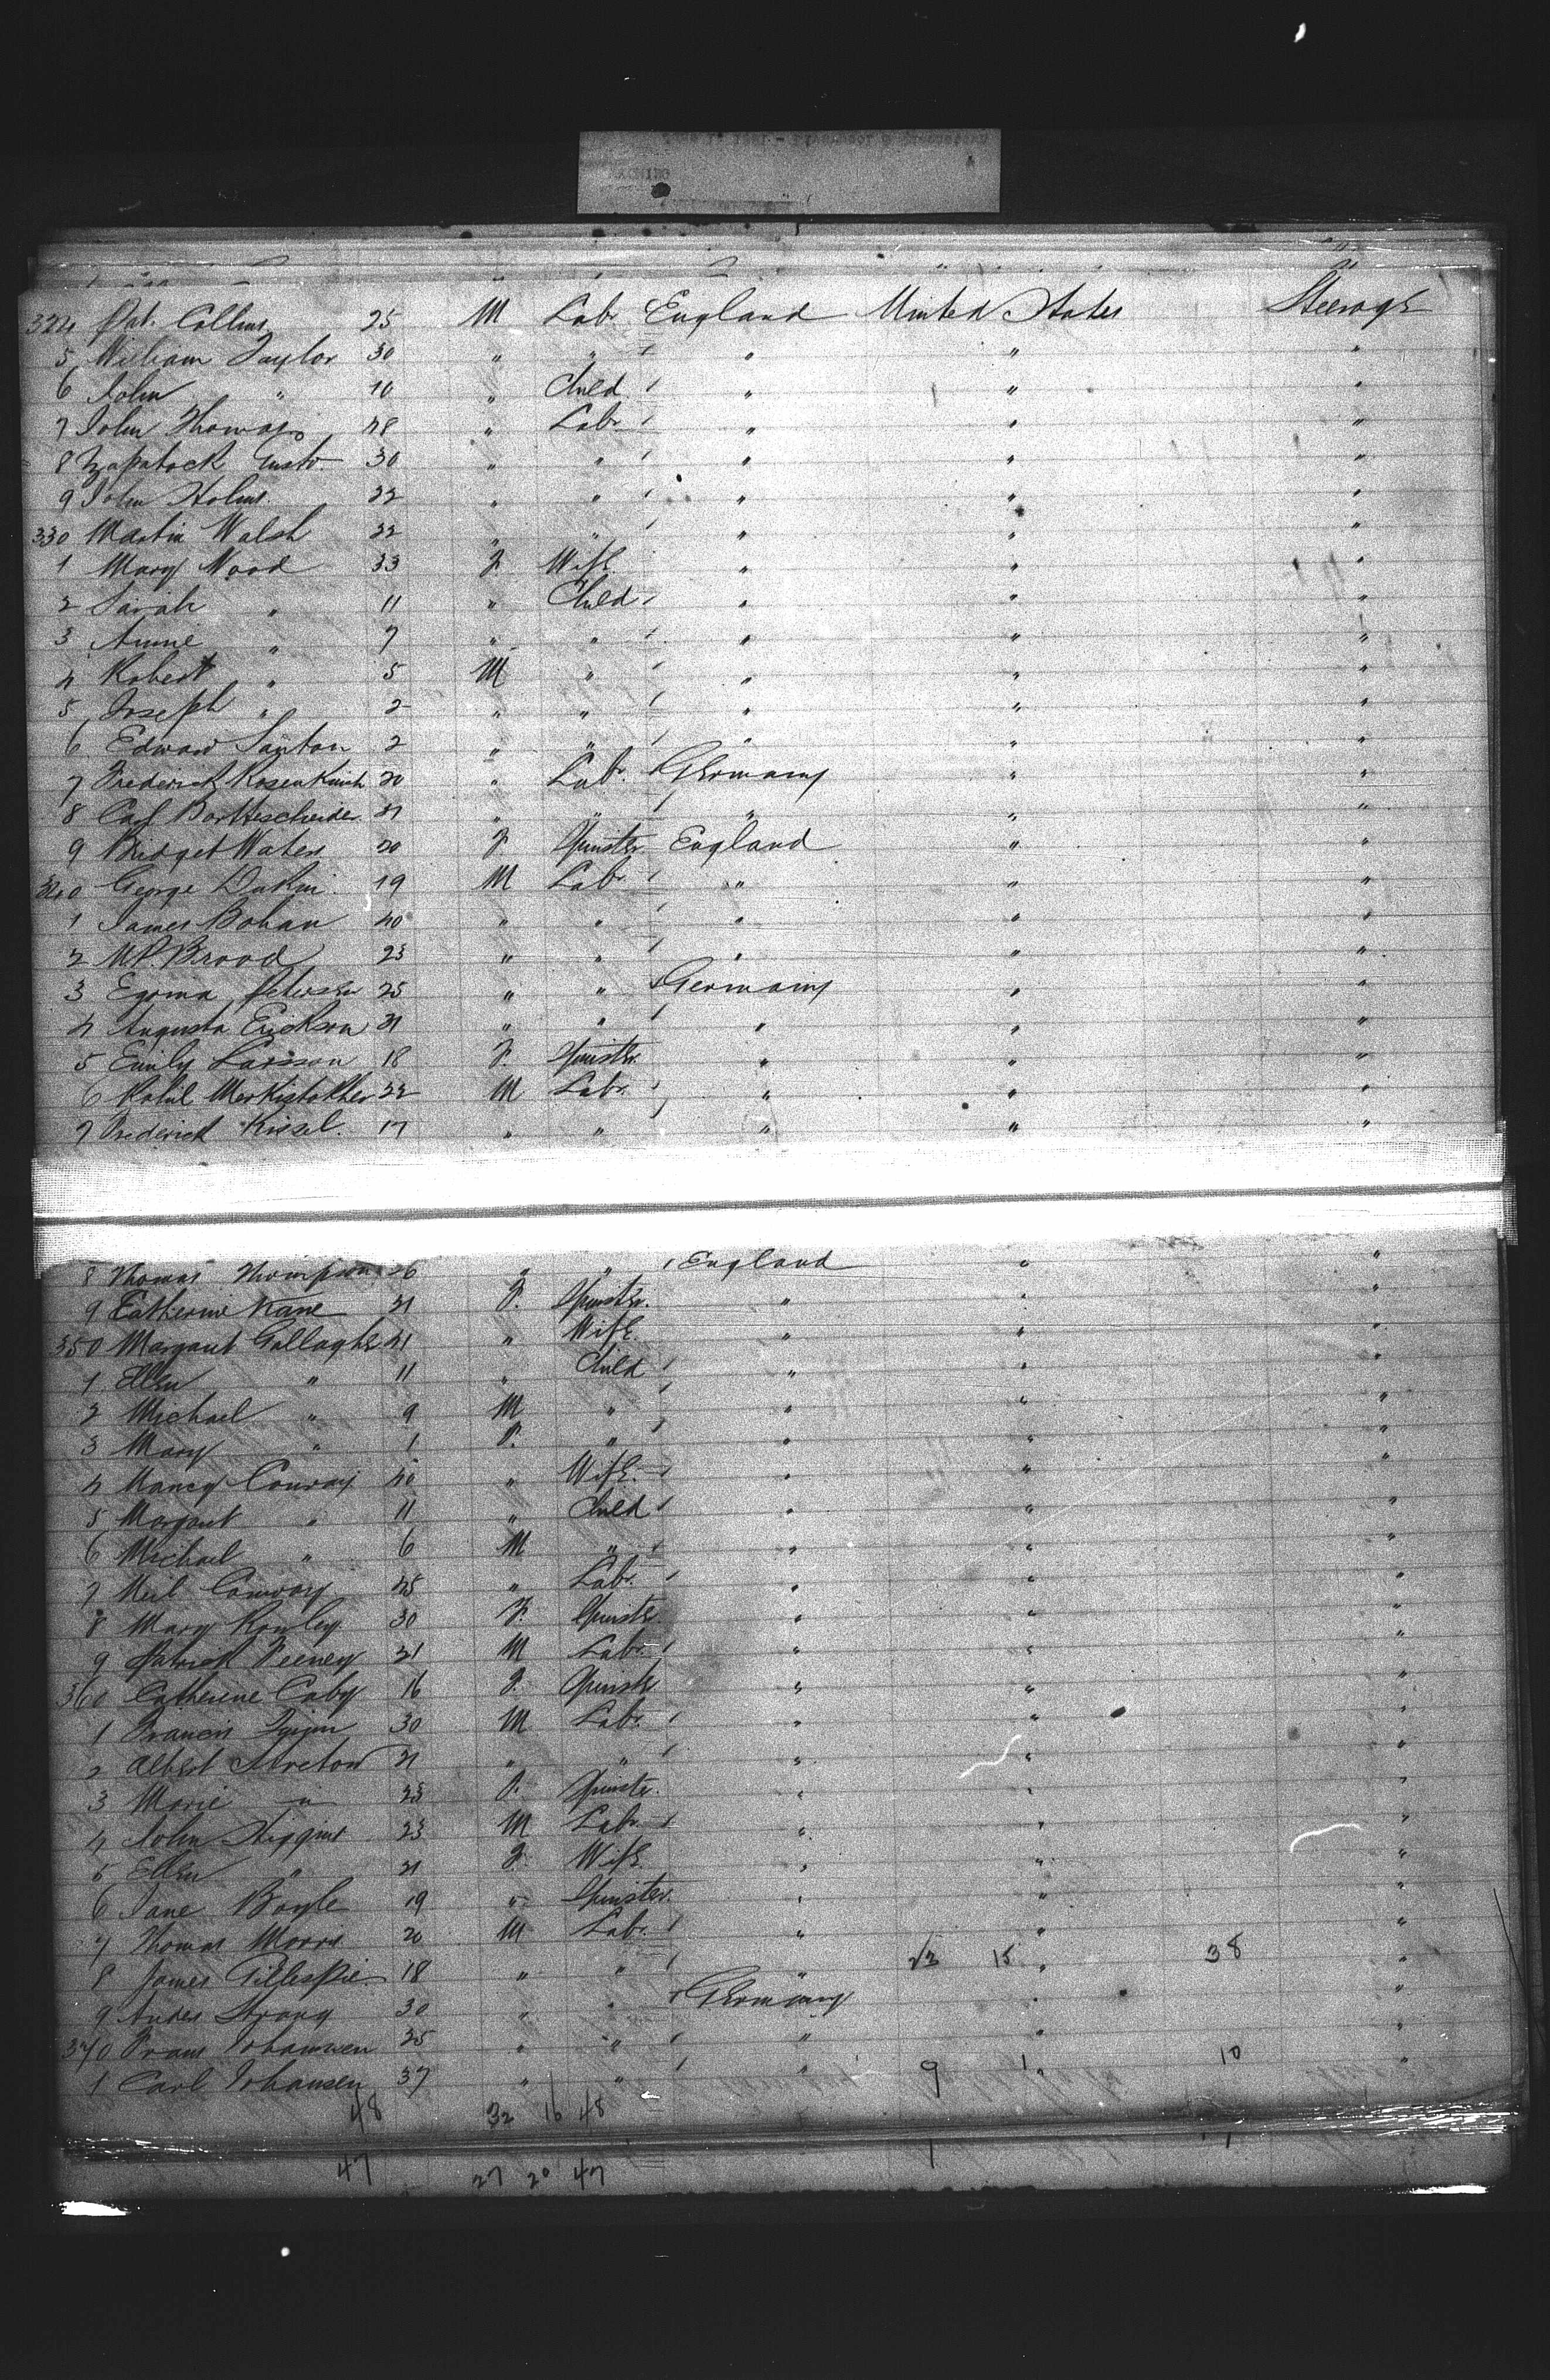 324 Pat. Collins 25 M Lab. England United States Steerage
5 William Taylor 30 " " " " "
6 John " 10 " Child " " "
7 John Thomas 48 " Lab. " " "
8 30 " " " " "
9 John Holms 32 " " " " "
330 Martin Walsh 32 " " " " "
1 Mary Wood 33 F. Wife " " "
2 Sarah " 11 " Child " " "
3 Annie " 7 " " " " "
4 Robert " 5 M " " " "
5 Joseph " 2 " " " " "
6 Edward 2 " " " " "
7 Frederick 20 " Lab. Germany " "
8 Carl 21 " " " " "
9 Bridget Waters 20 F. Spinster England " "
340 George Dakin 19 M Lab. " " "
1 James Bohan 40 " " " " "
2 23 " " " " "
3 25 " " Germany " "
4 Augusta Erickson 21 " " " " "
5 Emily Larsson 18 F. Spinstr. " " "
6 22 M Lab. " " "
7 Frederick Kissel. 17 " " " " "
8 Thomas Thompson 26 " " England " "
9 Catherine Kane 21 F. Spinstr. " " "
350 Margaret Gallagher 41 " Wife " " "
1 Ellen " 11 " Child " " "
2 Michael " 9 M " " " "
3 Mary " 1 F. " " " "
4 Nancy Conway 40 " Wife " " "
5 Margaret " 11 " Child " " "
6 Michael " 6 M " " " "
7 Neil Conway 45 " Lab. " " "
8 Mary Rowley 30 F. Spinstr. " " "
9 Patrick Feeney 21 M Lab. " " "
360 Catherine 16 F. Spinstr " " "
1 Francis 30 M Lab. " " "
2 Albert 21 " " " " "
3 Marie " 23 F. Spinstr. " " "
4 John Higgins 23 M Lab. " " "
5 Ellen " 21 F. Wife " " "
6 Jane Boyle 19 " Spinster. " " "
7 Thomas Morris 20 M Lab. " " "
8 James Gillespie 18 " " " 15 " 38 "
9 Strang 30 " " Germany " "
370 35 " " " " "
1 Carl Johansen 37 " " " 9 1 " 10 "
48 32 16 48
47 27 20 47 1